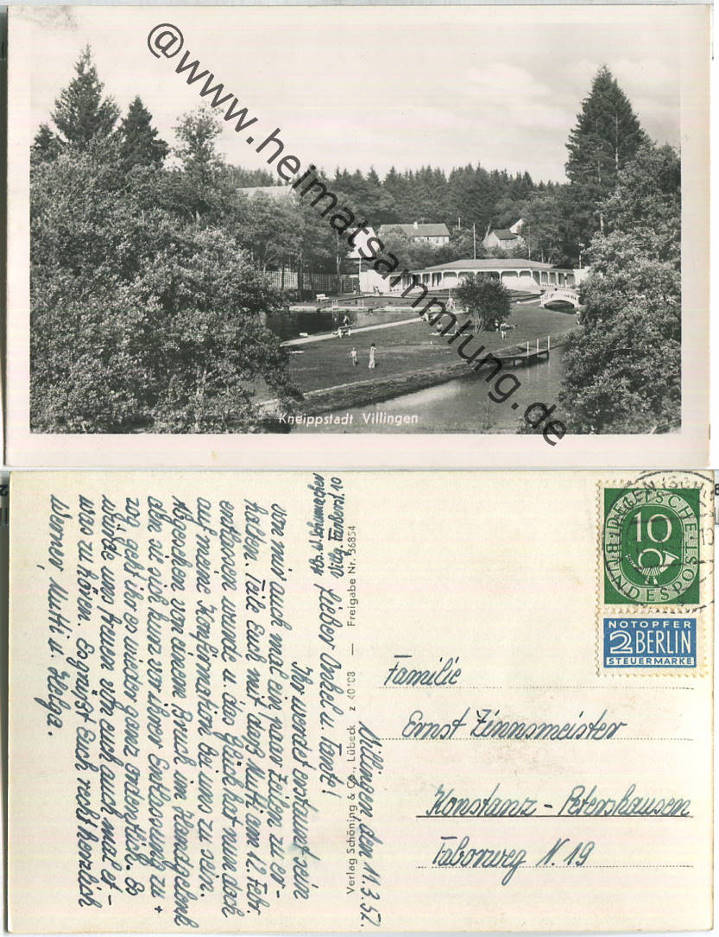 @www.heimatsammlung.de
Kneippstadt Villingen
W. Schirmacher
Vill. Fargbril. 10
Villingen den 11.3.52.
Lieber Onkel u. Tante!
Ihr werdet erstaunt sein
von mir auch mal ein paar Zeilen zu er-
halten. Teile Euch mit daß Mutti am 12. Febr.
entlassen wurde u. das Glück hat nun doch
auf meine Konfirmation bei uns zu sein.
Abgesehen von einem Bruch im Handgelenk
den sie sich kurz vor ihrer Entlassung zu
zog geht ihr es wieder ganz ordentlich. Es
würde uns freuen von euch auch mal et-
was zu hören. Es grüßt Euch recht herzlich
Werner, Mutti u. Helga.
Verlag Schöning & Co., Lübeck z 40108 — Freigabe Nr. 56854
DEUTSCHE
BUNDESPOST
10
NOTOPFER
2 BERLIN
STEUERMARKE
Familie
Ernst Zinnsmeister
Konstanz - Petershausen
Taborweg N. 19